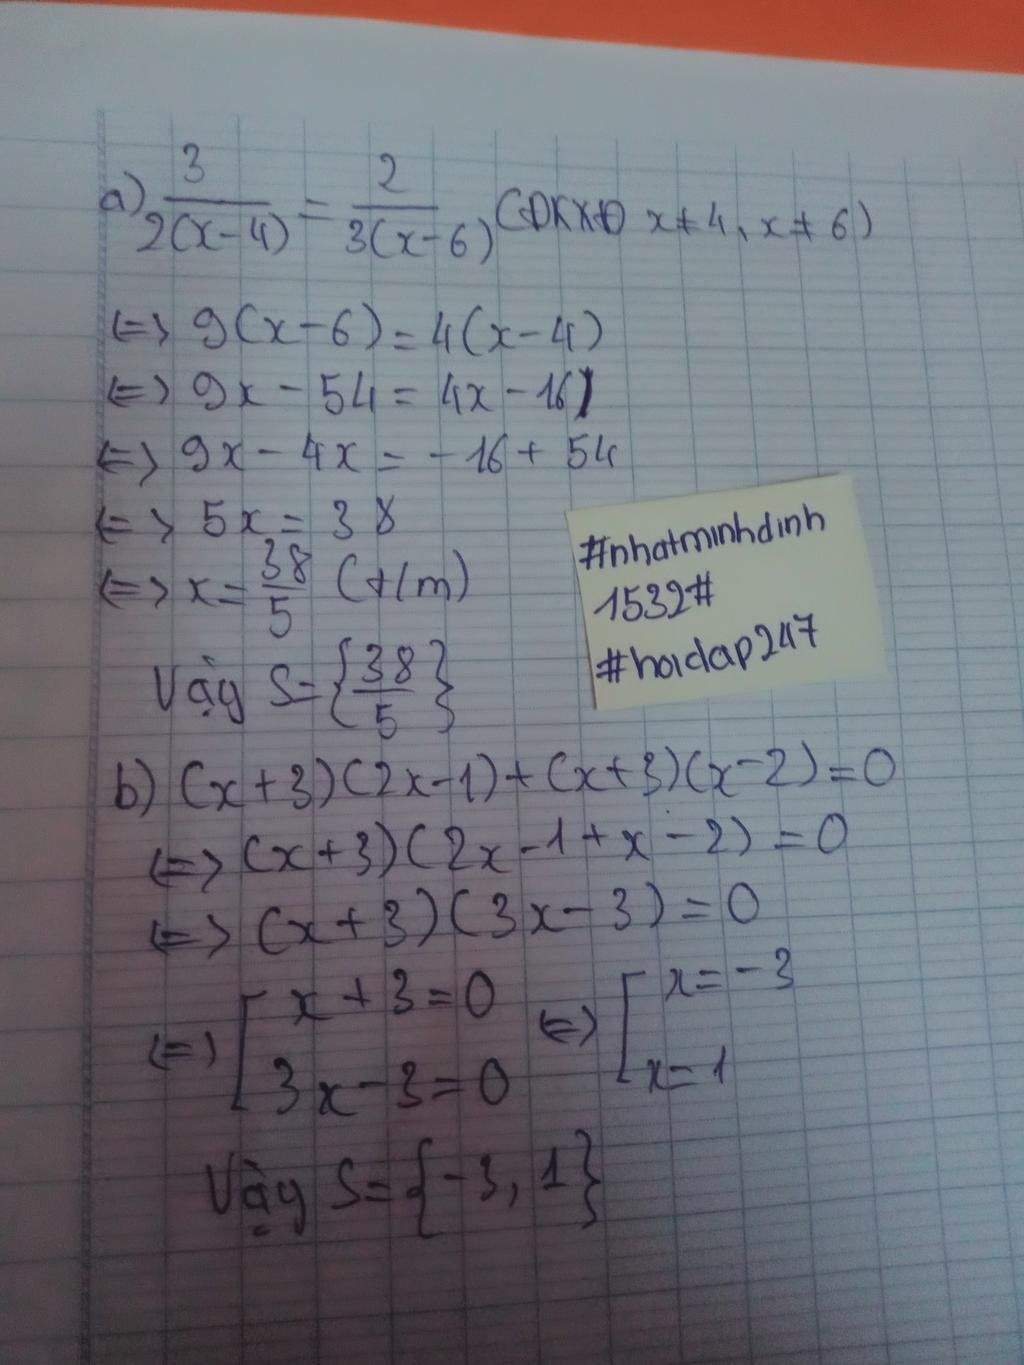 a) 3/(2(x-4)) = 2/(3(x-6)) (ĐKXĐ x≠4, x≠6)
<=> 9(x-6) = 4(x-4)
<=> 9x - 54 = 4x - 16
<=> 9x - 4x = -16 + 54
<=> 5x = 38
<=> x = 38/5 (t/m)
Vậy S = {38/5}
#nhatminhdinh
1532#
#hoidap247
b) (x+3)(2x-1)+(x+3)(x-2)=0
<=> (x+3)(2x-1+x-2)=0
<=> (x+3)(3x-3)=0
<=> [ x+3=0 <=> [ x=-3
3x-3=0 x=1
Vậy S={-3, 1}